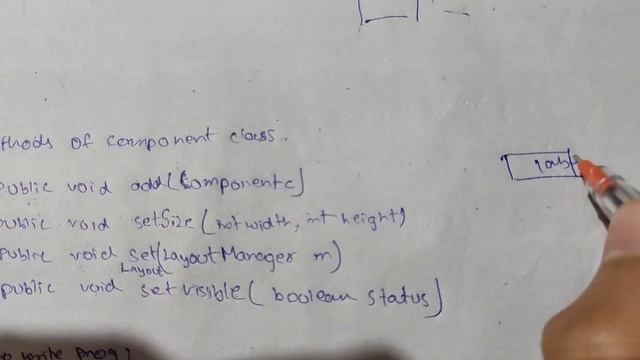 thods of component class.
public void add(Component c)
public void setSize(int width, int height)
public void set(LayoutManager m)
Layout
public void setvisible( boolean status)
to write prog;